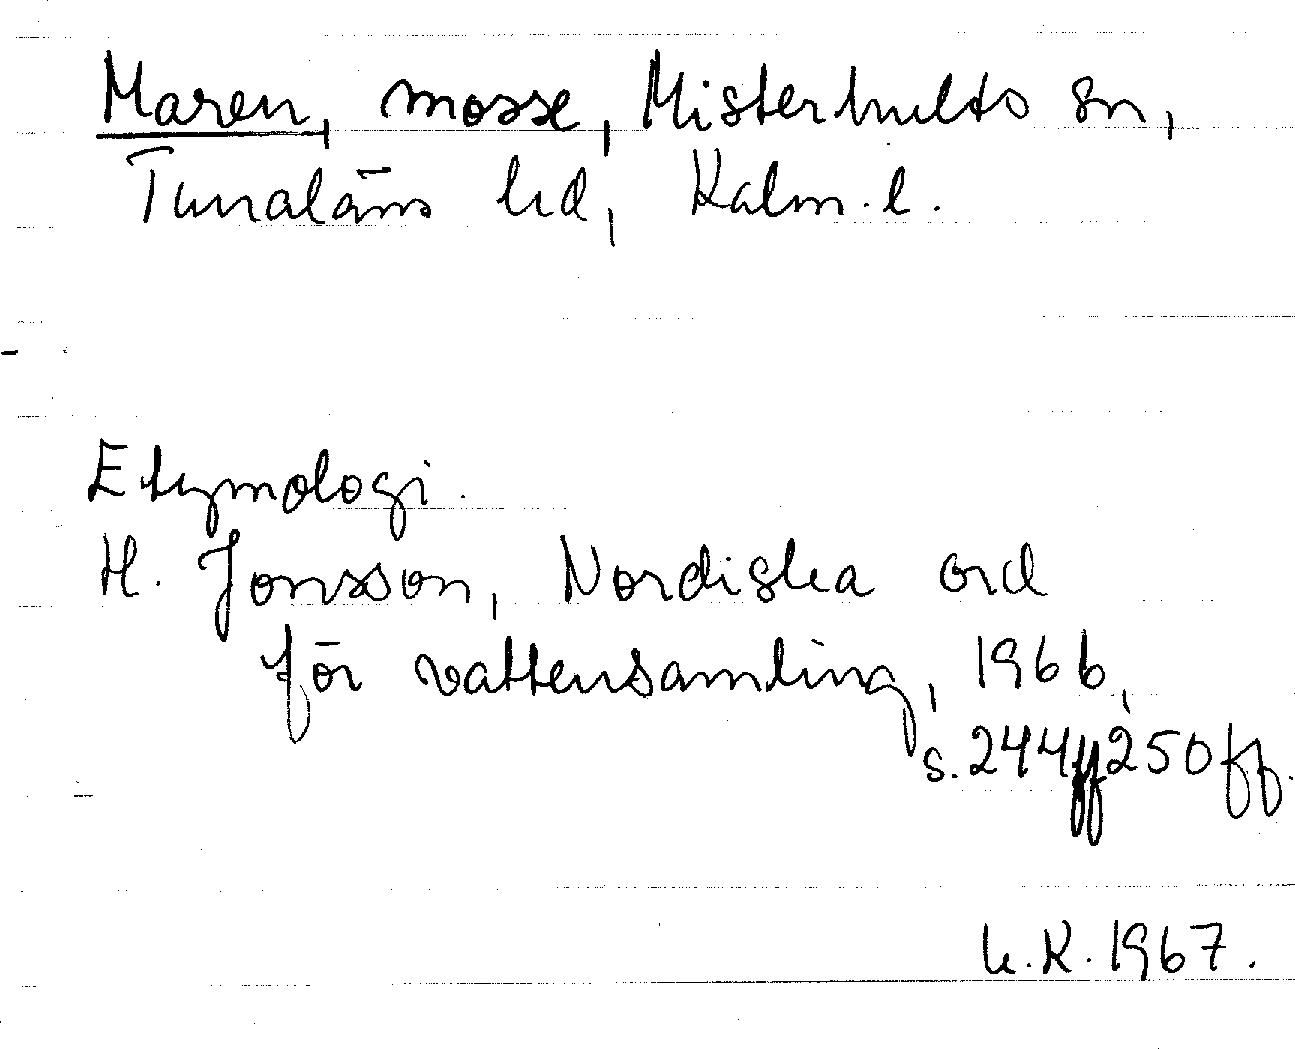 Maren, mosse, Misterhults sn,
Tunaläns hd, Kalm. l.
Etymologi.
H. Jonsson, Nordiska ord
för vattensamling, 1966,
s. 244ff, 250ff.
K.K. 1967.